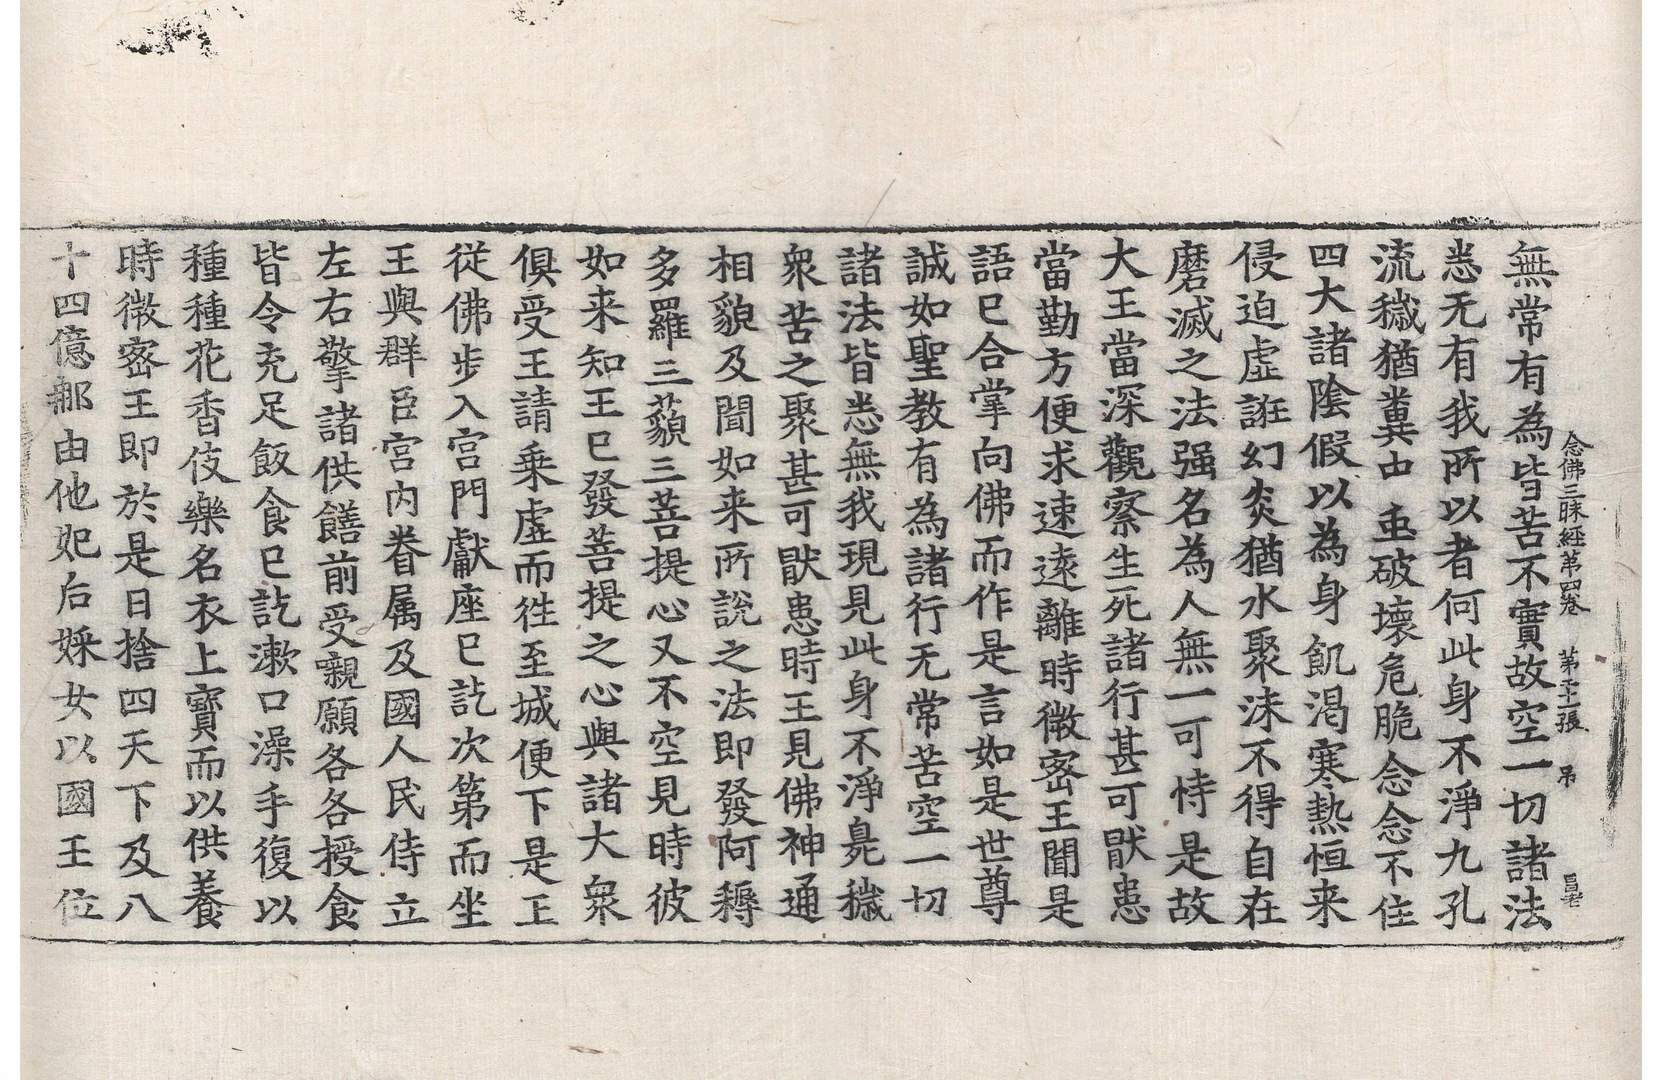 念佛三昧経第四卷　第二十二張　吊
無常有為皆苦不實故空一切諸法
悉无有我所以者何此身不淨九孔
流穢猶糞由 垂破壞危脆念念不住
四大諸陰假以為身飢渴寒熱恒来
侵迫虛誑幻炎猶水聚沫不得自在
磨滅之法强名為人無一可恃是故
大王當深觀察生死諸行甚可猒患
當勤方便求速遠離時微密王聞是
語已合掌向佛而作是言如是世尊
誠如聖教有為諸行无常苦空一切
諸法皆悉無我現見此身不淨臭穢
衆苦之聚甚可猒患時王見佛神通
相貌及聞如来所說之法即發阿耨
多羅三藐三菩提心又不空見時彼
如来知王已發菩提之心與諸大衆
俱受王請乘虛而徃至城便下是王
從佛步入宮門獻座已訖次第而坐
王與群臣宮内眷属及國人民侍立
左右擎諸供饍前受親願各各授食
皆令充足飯食已訖漱口澡手復以
種種花香伎樂名衣上寶而以供養
時微密王即於是日捨四天下及八
十四億那由他妃后婇女以國王位